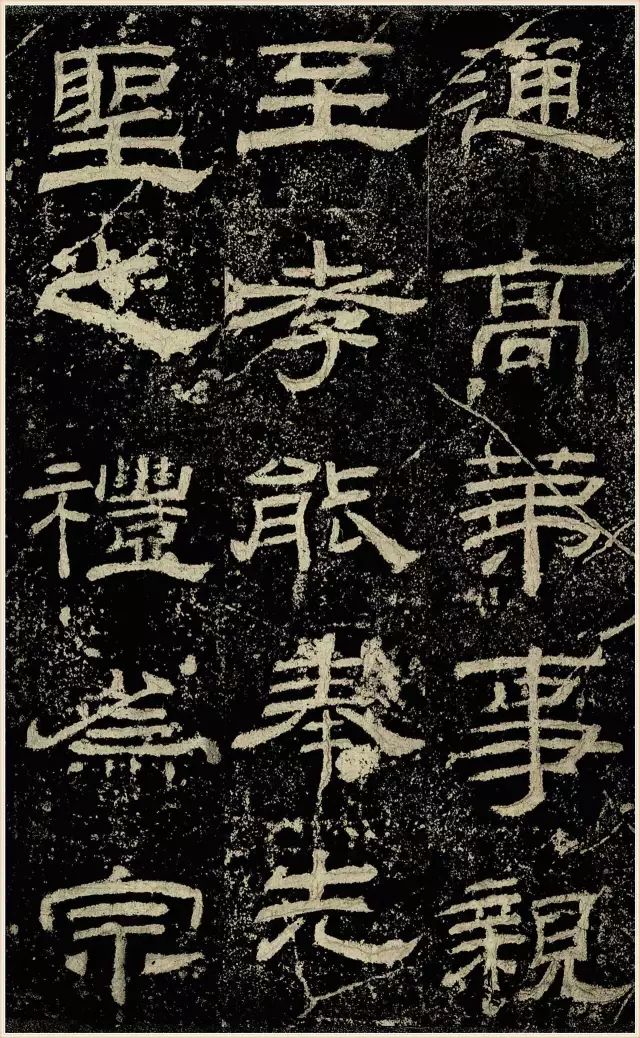 通高第事親
至孝能奉先
聖之禮為宗